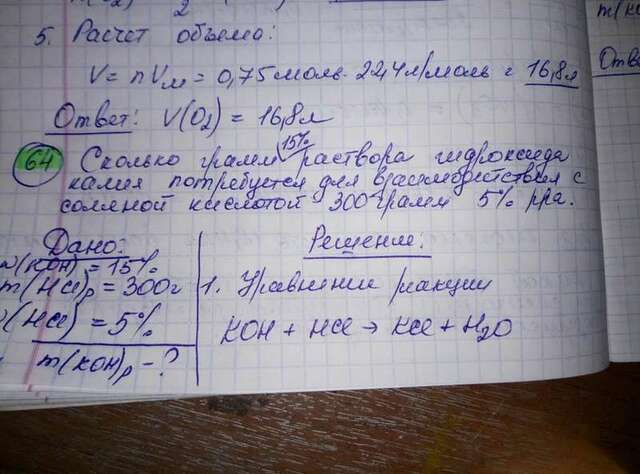 5. Расчет объема:
V = nVм = 0,75моль · 22,4л/моль = 16,8л
Ответ: V(O2) = 16,8л
64 Сколько грамм 15% раствора гидроксида
калия потребуется для взаимодействия с
соляной кислотой 300 грамм 5% р-ра.
Дано:
ω(KOH) = 15%
m(HCl)р = 300г
(HCl) = 5%
m(KOH)р - ?
Решение:
1. Уравнение реакции
KOH + HCl → KCl + H2O
m(KO
Отве